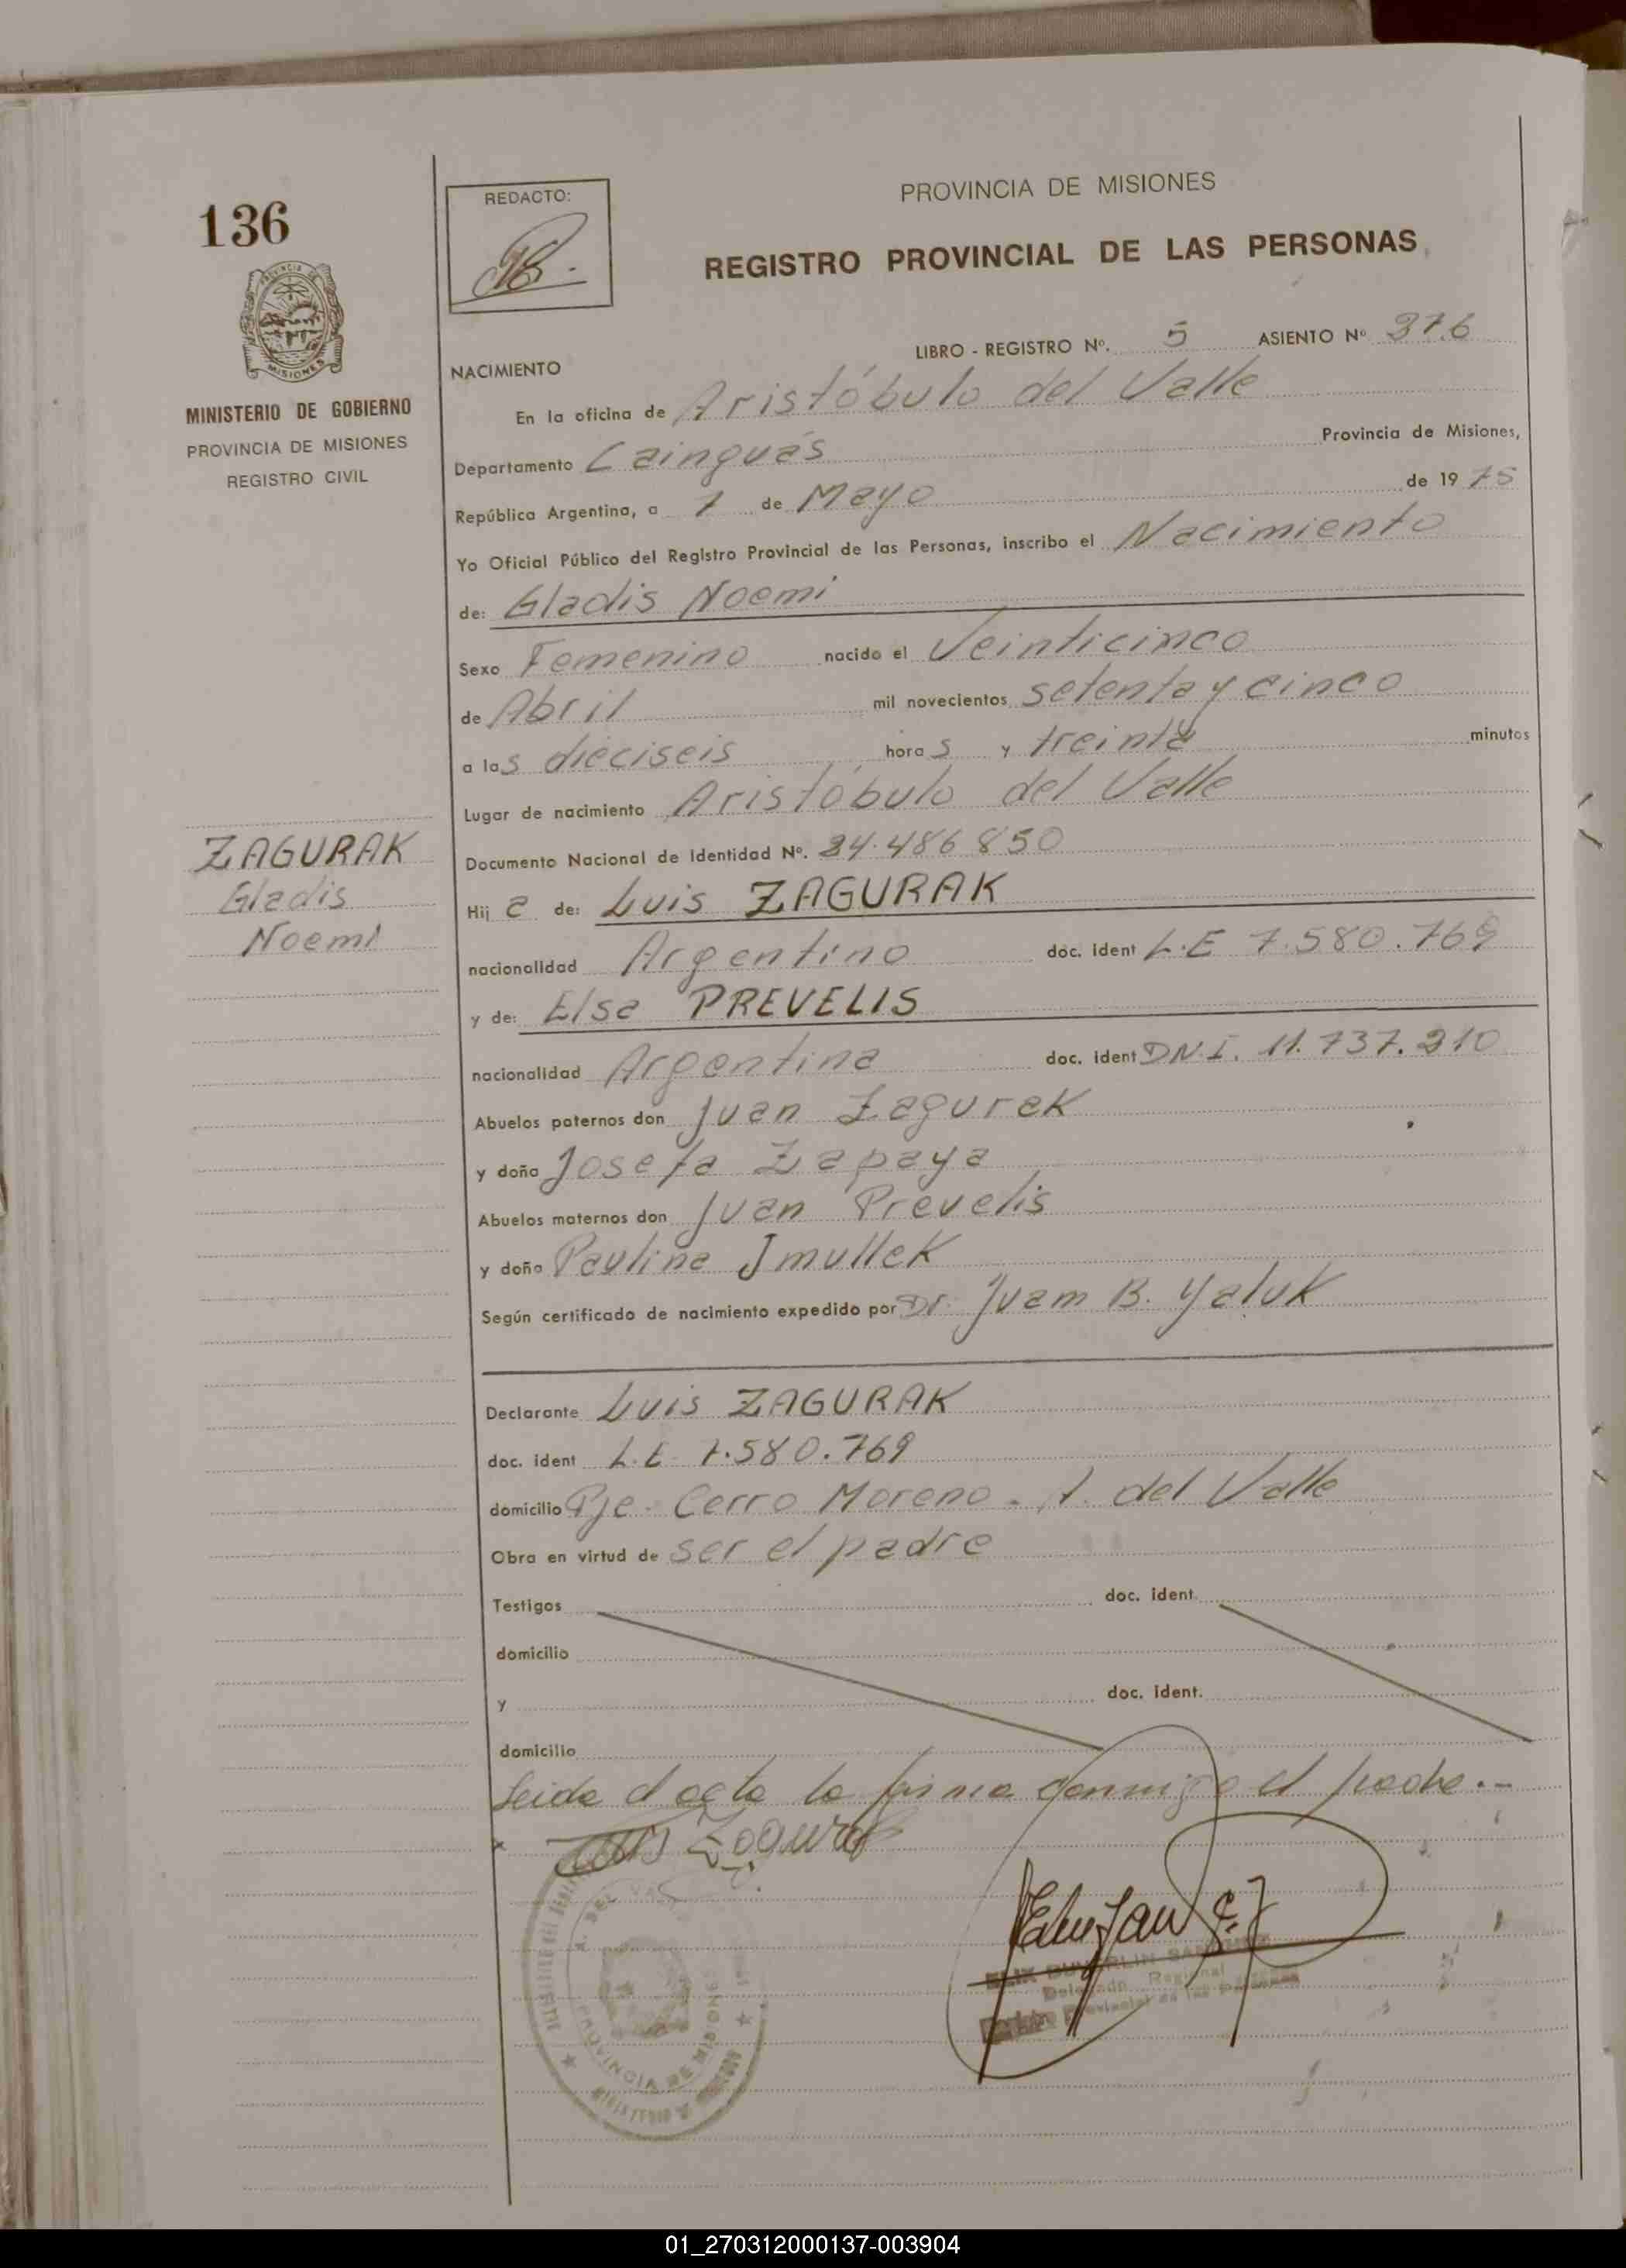 136
PROVINCIA DE
MISIONES
MINISTERIO DE GOBIERNO
PROVINCIA DE MISIONES
REGISTRO CIVIL
REDACTO:
PROVINCIA DE MISIONES
REGISTRO PROVINCIAL DE LAS PERSONAS
LIBRO - REGISTRO Nº. 5 ASIENTO Nº 376
NACIMIENTO
En la oficina de Aristóbulo del Valle
Departamento Cainguás Provincia de Misiones,
República Argentina, a 7 de Mayo de 1975
Yo Oficial Público del Registro Provincial de las Personas, inscribo el Nacimiento
de: Gladis Noemi
Sexo Femenino nacido el Veinticinco
de Abril mil novecientos setenta y cinco
a las dieciseis horas y treinta minutos
Lugar de nacimiento Aristóbulo del Valle
Documento Nacional de Identidad Nº. 24.486850
ZAGURAK
Gladis
Noemi
Hija de: Luis ZAGURAK
nacionalidad Argentino doc. ident L.E 7.580.769
y de: Elsa PREVELIS
nacionalidad Argentina doc. ident D.N.I. 11.737.210
Abuelos paternos don Juan Zagurak
y doña Josefa Zapaya
Abuelos maternos don Juan Prevelis
y doña Paulina Jmullek
Según certificado de nacimiento expedido por Dr. Juam B. Yaluk
Declarante Luis ZAGURAK
doc. ident L.E 7.580.769
domicilio Pje. Cerro Moreno. A. del Valle
Obra en virtud de ser el padre
Testigos doc. ident.
domicilio
y doc. ident.
domicilio
Leida el acta la firma conmigo el padre.-
x Luis Zagurak
A. DEL VALLE
PROVINCIA DE MISIONES
MINISTERIO DE GOBIERNO
Delegado Regional
Registro Provincial de las Personas
01_270312000137-003904